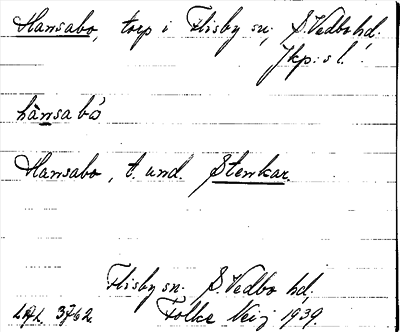 Hansabo, torp i Flisby sn, S. Vedbo hd.
Jkp:s l.
hànsabó
Hansabo, t. und. Stenkar.
Flisby sn, S. Vedbo hd.
3762 Folke 1939